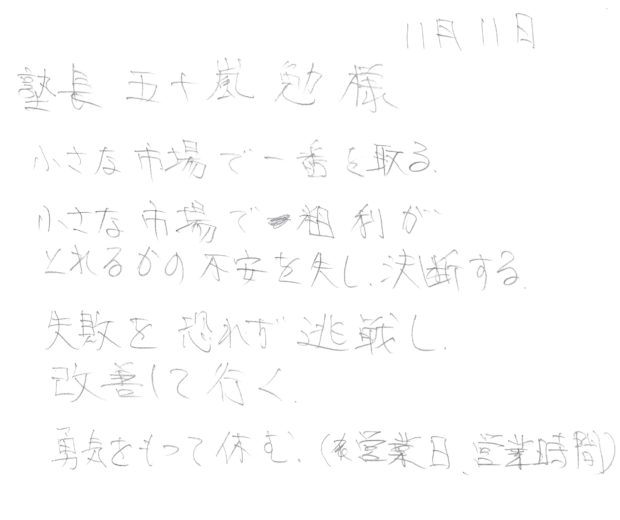 11月11日
塾長 五十嵐 勉 様
小さな市場で一番を取る.
小さな市場で粗利が
とれるかの不安を失し、決断する.
失敗を恐れず逃戦し.
改善して行く.
勇気をもって休む、(営業日、営業時間)